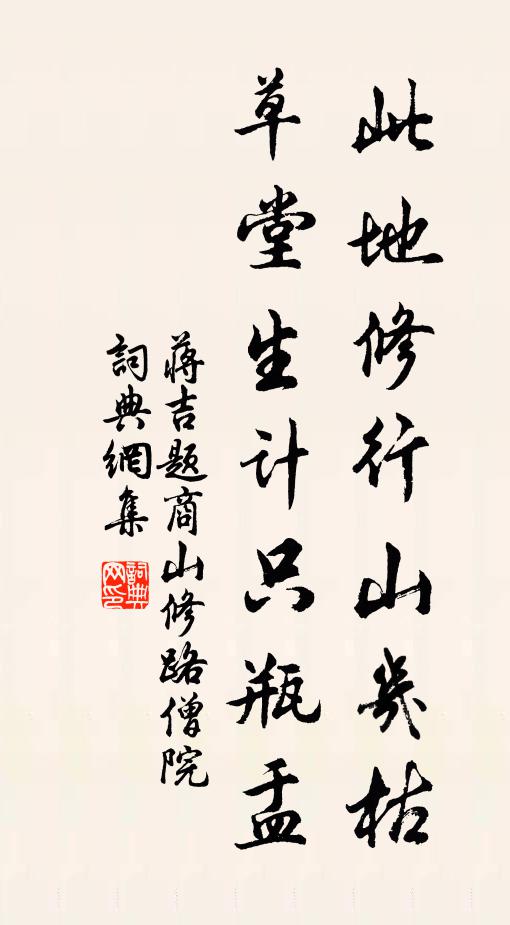 此地修行山幾枯
草堂生计只瓶盂
蒋吉题商山修路僧院
詞典網集
詞典网印